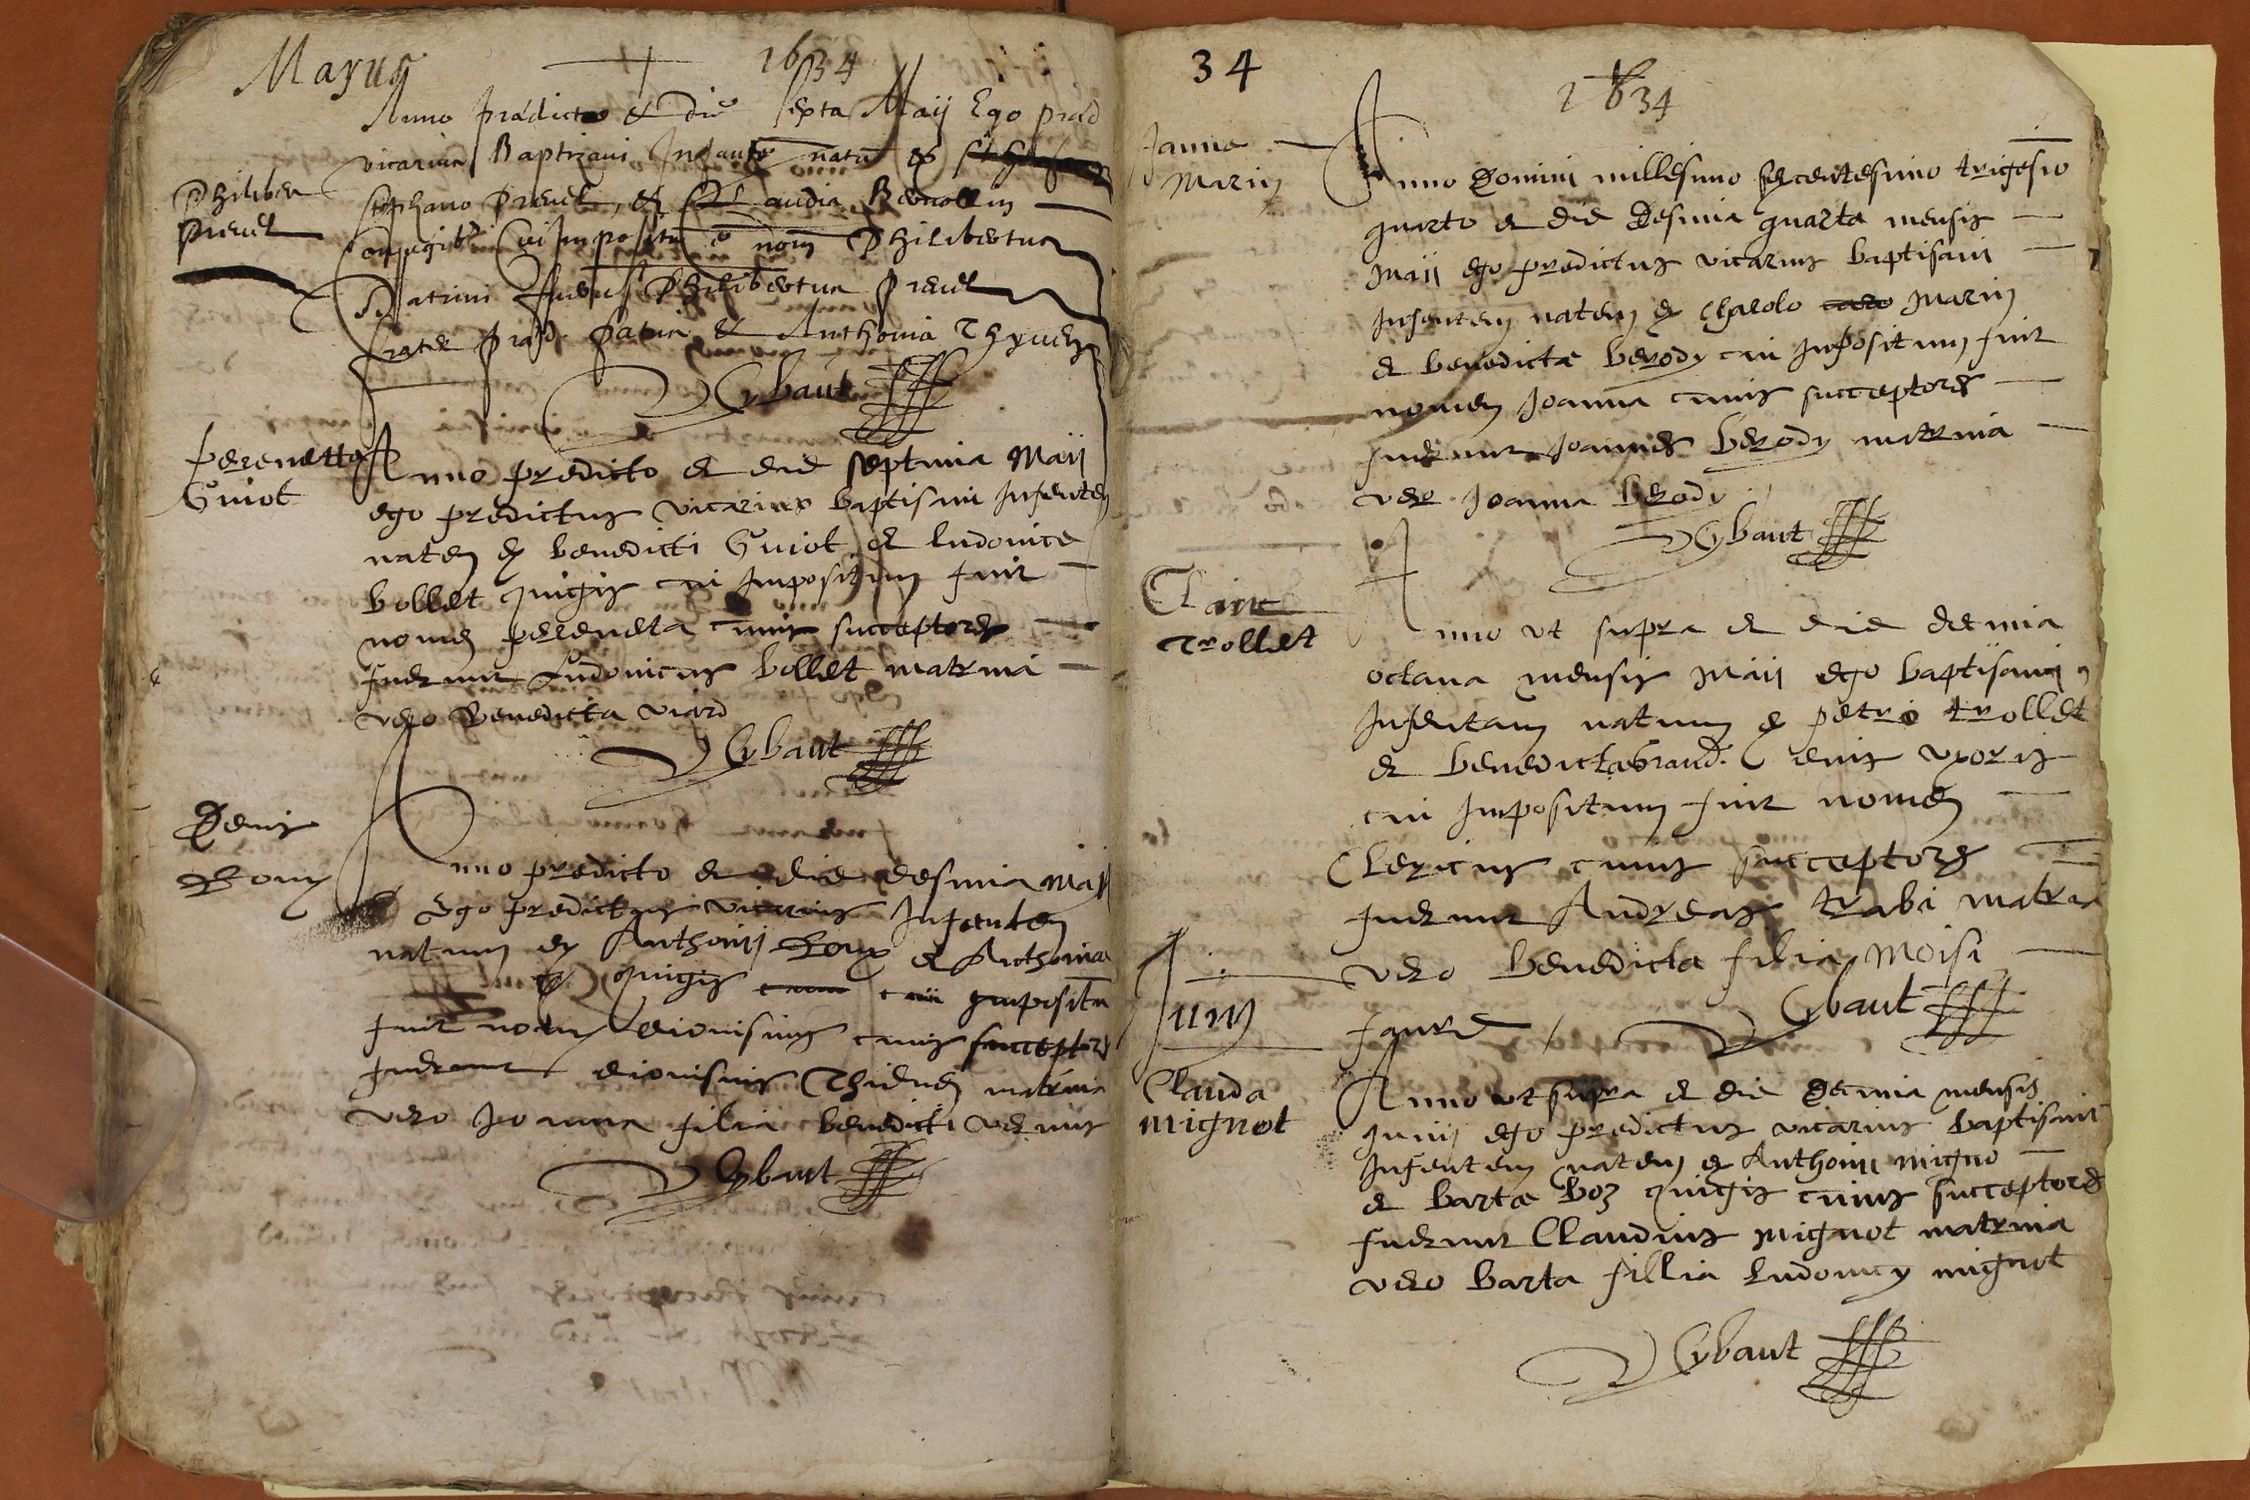 Mayus 1634
Anno prædicto & die sexta Maij Ego præd
vicarius Baptizavi Infante natu ex
Philiber
Stephano Preuel, & Claudia
Preuel
Conjugib Cui Impositu e nom Philibertus
Patrini fuerut Philibertus Preuel
frater præd. patris & Anthonia Thyuen
Gybaut
perenette
Guiot
Anno predicto et die septima Maij
ego predictus vicarius baptisaui Infenten
naten ex benedicti Guiot et ludouice
bollet iuigis cui Impositum fuit
nomen pereneta cuius succeptores
fuerunt Ludouicus bollet matrina
vero Benedicta viard
Gybaut
Denis
Roux
Anno predicto et die desima Maij
Ego predictus vicarius Infenten
natum ex Anthonij Roux et Anthonia
iuigis cui Impositu
fuit nomen dionisius cuius succeptores
fuerunt dionisius Thieuen matrina
vero Joanna filia benedicti
Gybaut
34
1634
Janne
Marin
Anno Domini millesimo sexcentesimo trigesio
quarto et die desima quarta mensis
Maij ego predictus vicarius baptisaui
Infenten naten ex Charolo Marin
et benedictæ berody cui Impositum fuit
nomen Joanna cuius succeptores
fuerunt Joannes berody matrina
vero Joanna berody
Gybaut
Claire
Trollet
Anno vt supra et die decima
octaua mensis Maij ego baptisaui
Infentam natum ex petro trollet
et benedicta Grand. eius vxoris
cui Impositum fuit nomen
Clericus cuius succeptores
fuerunt Andreas trabi matria
vero benedicta filia Moisi
faure
Gybaut
Juin
Clauda
mignot
Anno vt supra et die Decima mensis
Junij ego predictus vicarius baptisaui
Infenten naten ex Anthonii migno
et bartæ boz iuigis cuius succeptores
fuerunt Claudius mignot matrina
vero barta fillia ludouicy mignot
Gybaut